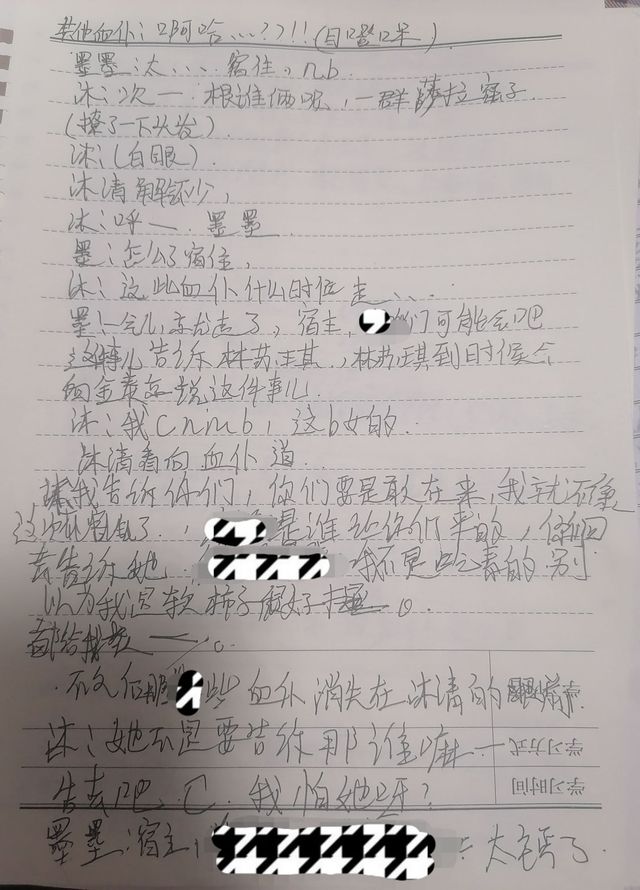 其他血仆:啊哈...??!!(目瞪口呆).
墨墨:太...宿住,nb.
沐:次一 根谁俩呢,一群
(撩了一下头发).
沐:(白眼).
沐清
沐:呼一 墨墨
墨:怎么了宿住,
沐:这些血仆什么时候走....
墨:一会儿 走了,宿主, 们可能会吧
这事儿告诉林苏琪,林苏琪到时候会
说这件事儿.
沐:我cnmb,这b女的.
沐清看向血仆道.
我告诉你们,你们要是敢在来,我就不像
这次 了, 是谁让你们来的,你们回
去告诉她 我不是吃素的别
以为我是软柿子
都给我 一.
不 些血仆消失在沐清的眼前
学习
沐:她不是要告诉那谁嘛一
学习方式
告去吧,C 我怕她呀?
学习时间
墨墨:宿主, 太 了.